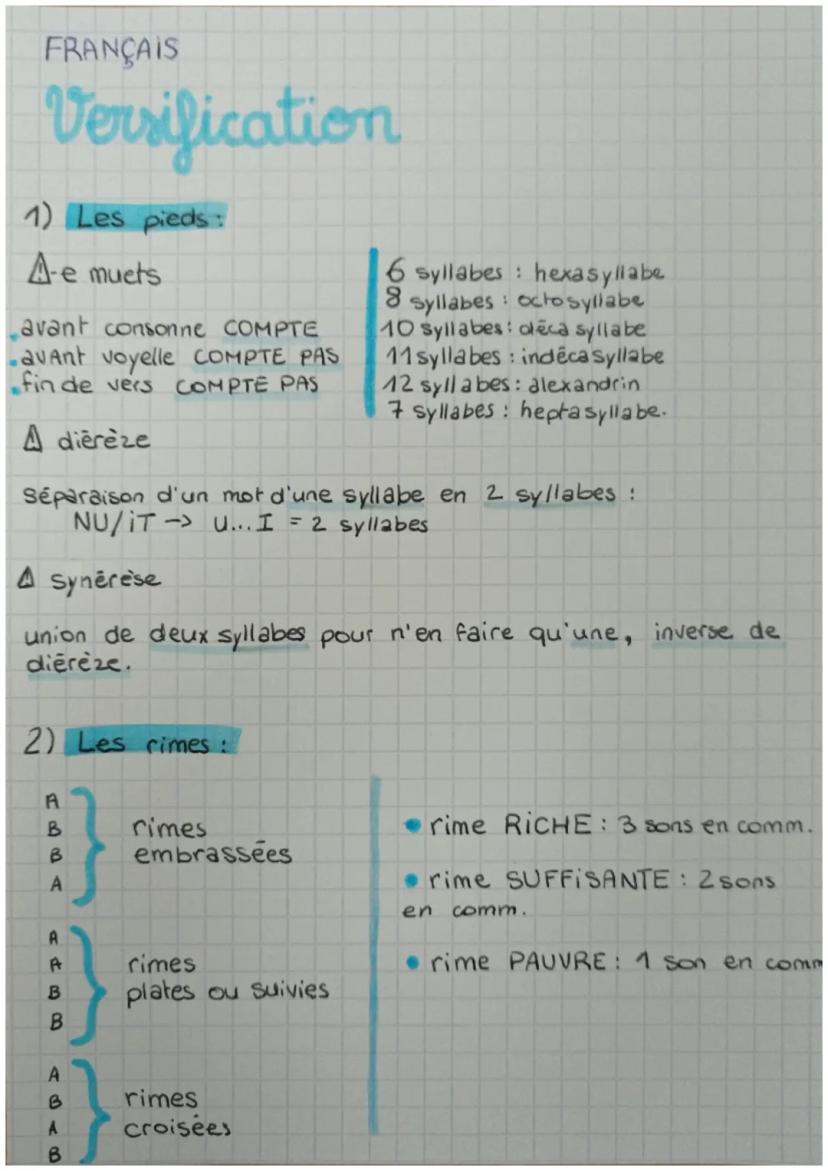 FRANÇAIS
Versification
1) Les pieds :
⚠-e muets
.avant consonne COMPTE
.avant voyelle COMPTE PAS
.fin de vers COMPTE PAS
6 syllabes : hexasyllabe
8 syllabes : octosyllabe
10 syllabes : décasyllabe
11 syllabes : indécasyllabe
12 syllabes : alexandrin
7 syllabes : heptasyllabe.
⚠ diérèze
séparaison d'un mot d'une syllabe en 2 syllabes :
NU/iT -> U... I = 2 syllabes
⚠ synérèse
union de deux syllabes pour n'en faire qu'une, inverse de
diérèze.
2) Les rimes :
A
B
B
A
rimes
embrassées
A
A
B
B
rimes
plates ou suivies
A
B
A
B
rimes
croisées
• rime RiCHE : 3 sons en comm.
• rime SUFFiSANTE : 2 sons
en comm.
• rime PAUVRE : 1 son en comm